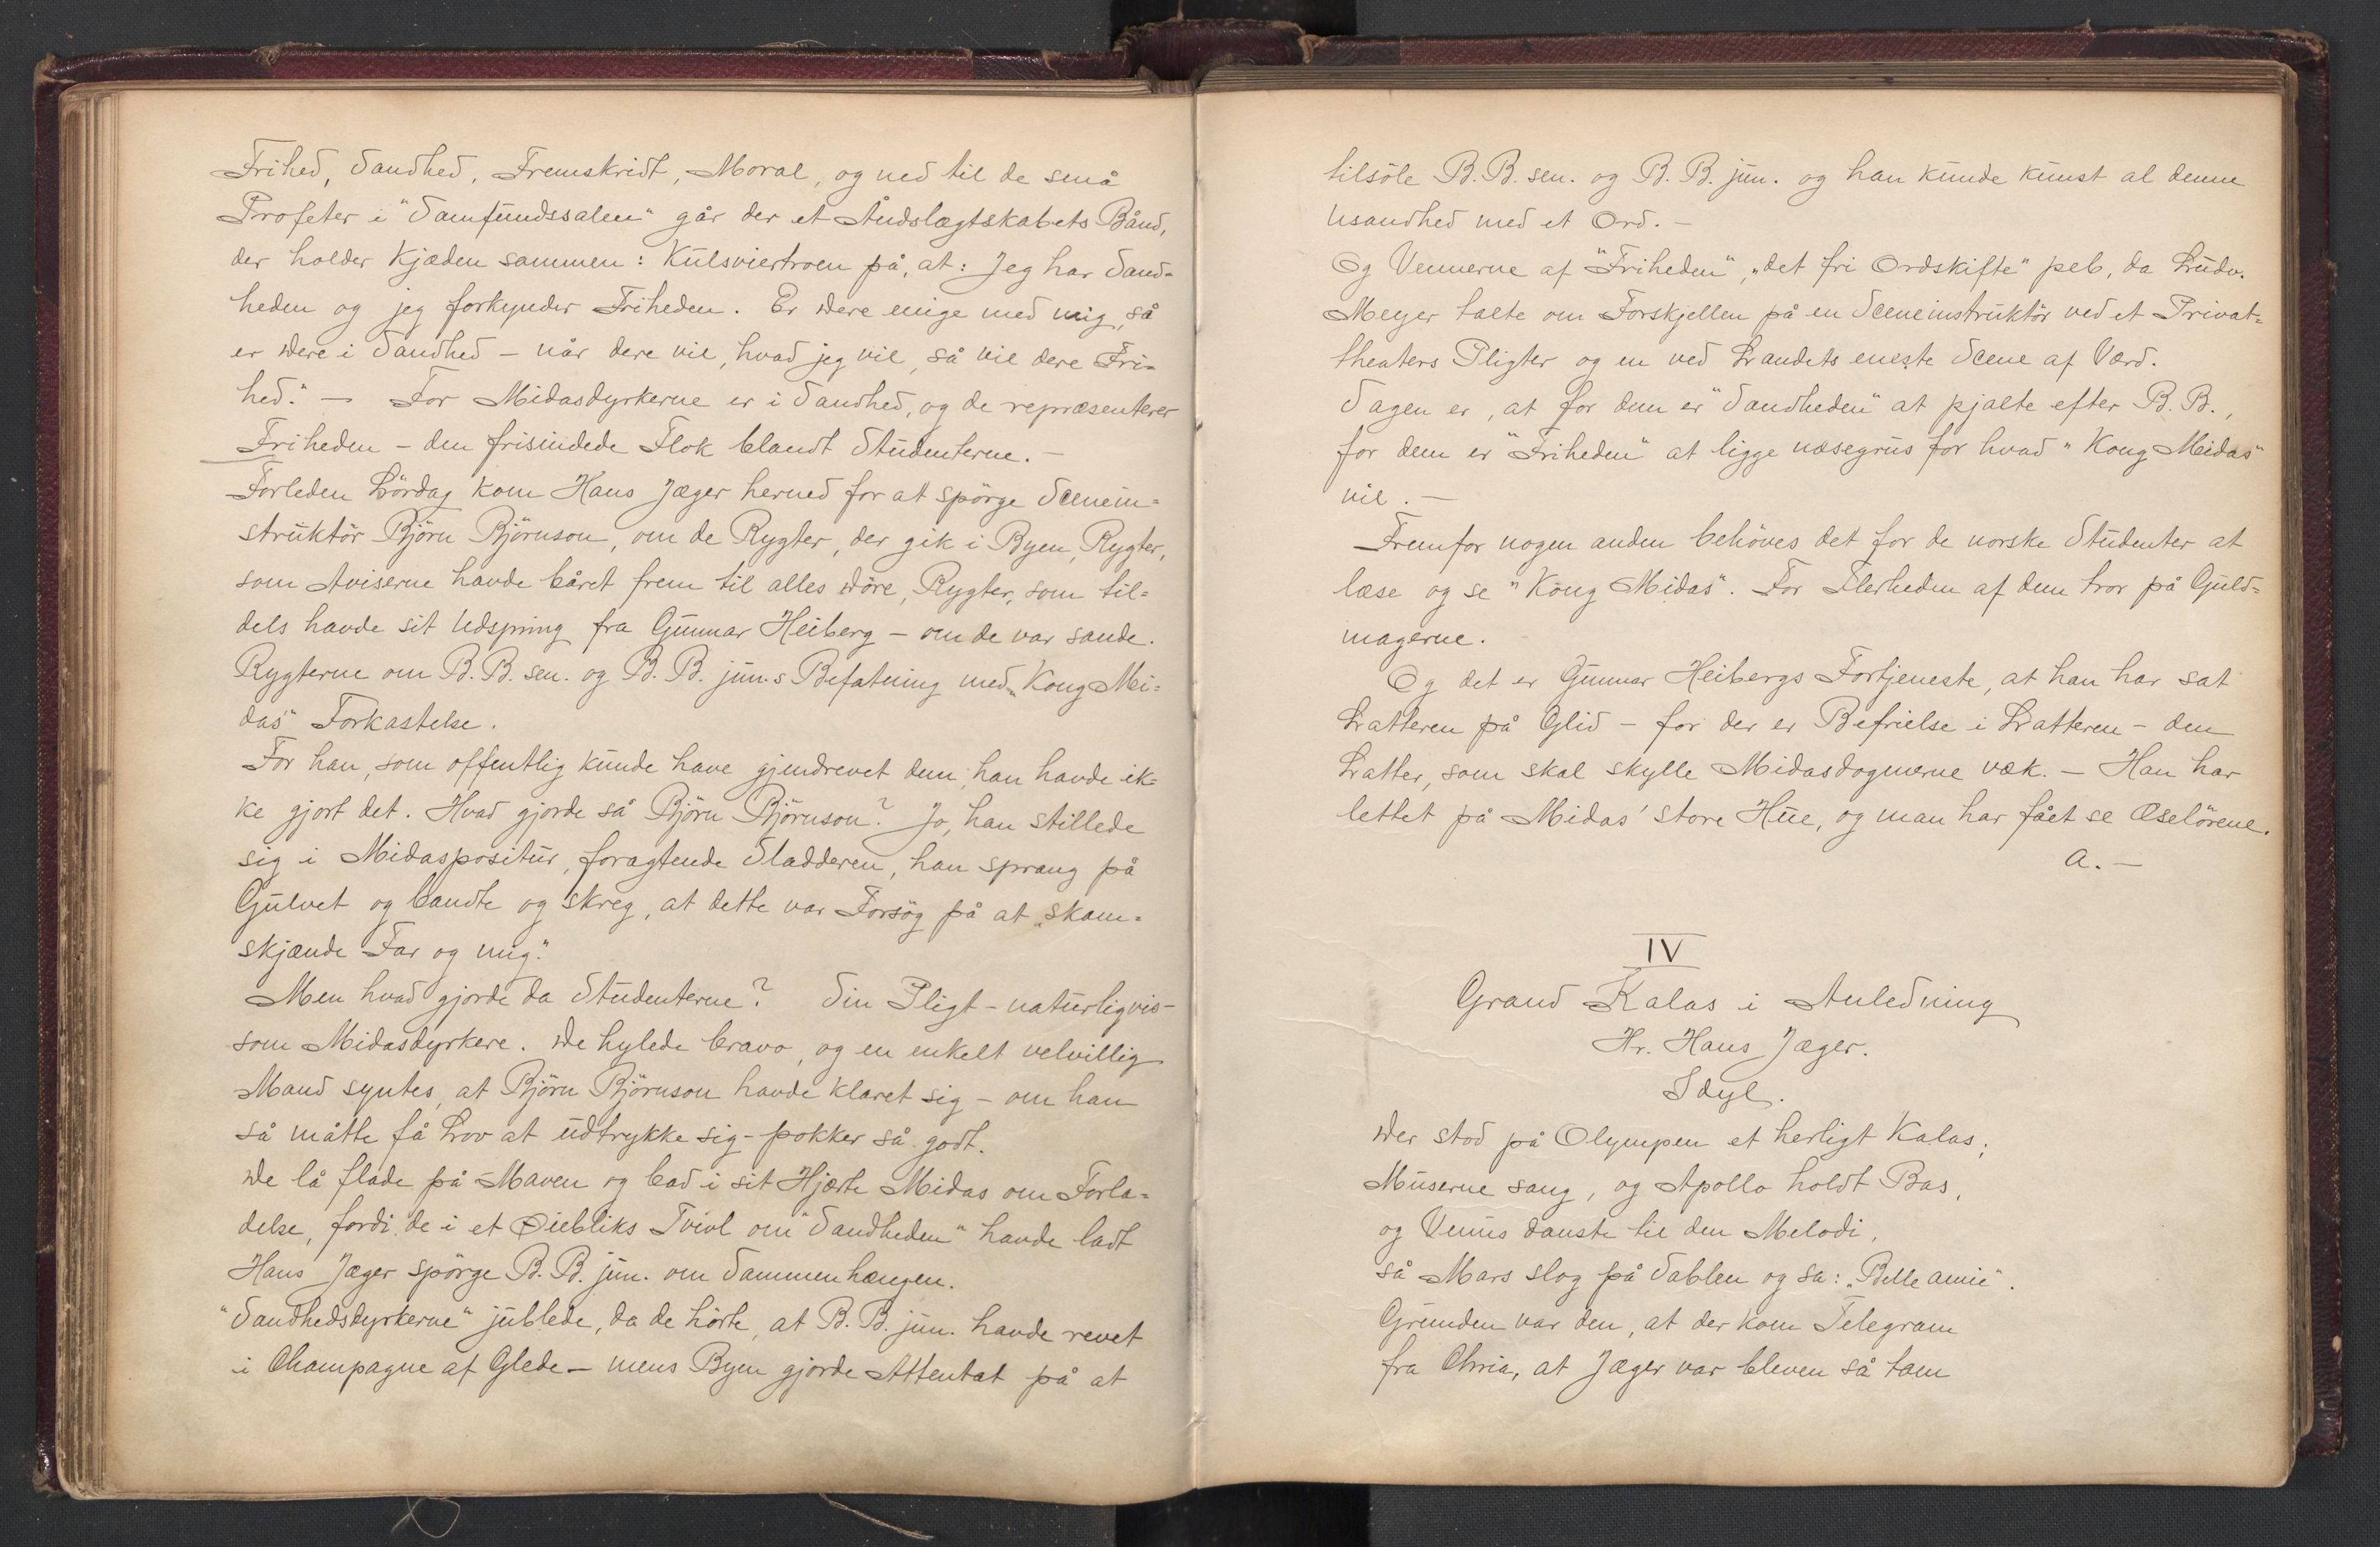 Frihed, Sandhed, Fremskridt, Moral, og ned til de små
Profeter i "Samfundssalen" går der et Åndslægtskabets Bånd,
der holder Kjæden sammen: Kulsviertroen på, at: Jeg har Sand=
heden og jeg forkynder Friheden. Er dere enige med mig, så
er dere i Sandhed - når dere vil, hvad jeg vil, så vil dere Fri=
hed." - For Midasdyrkerne er i Sandhed, og de repræsenterer
Friheden - den frisindede Flok blandt Studenterne. -
Forleden Lördag kom Hans Jæger herned for at spörge Scenein=
struktör Björn Björnson, om de Rygter, der gik i Byen, Rygter,
som Aviserne havde båret frem til alles Döre, Rygter, som til=
dels havde sit Udspring fra Gunnar Heiberg - om de var sande.
Rygterne om B. B. sen. og B. B. jun.s Befatning med "Kong Mi=
das" Forkastelse.
For han, som offentlig kunde have gjendrevet dem, han havde ik=
ke gjort det. Hvad gjorde så Björn Björnson? Jo, han stillede
sig i Midaspositur, foragtende Sladderen, han sprang på
Gulvet og bandte og skreg, at dette var Forsög på at "skam=
skjænde Far og mig."
Men hvad gjorde da Studenterne? Sin Pligt - naturligvis -
som Midasdyrkere. De hylede bravo, og en enkelt velvillig
Mand syntes, at Björn Björnson havde klaret sig - om han
så måtte få Lov at udtrykke sig - pokker så godt.
De lå flade på Maven og bad i sit Hjærte Midas om Forla=
delse, fordi de i et Øiebliks Tvivl om "Sandheden" havde ladt
Hans Jæger spörge B. B. jun. om Sammenhængen.
"Sandhedsdyrkerne" jublede, da de hörte, at B. B. jun. havde revet
i Champagne af Glede - mens Byen gjorde Attentat på at
tilsöle B. B. sen. og B. B. jun. og han kunde kunst al denne
Usandhed med et Ord. -
Og Vennerne af "Friheden", "det fri Ordskifte" peb, da Ludv.
Meyer talte om Forskjellen på en Sceneinstruktör ved et Privat=
theaters Pligter og en ved Landets eneste Scene af Værd.
Sagen er, at for dem er "Sandheden" at pjalte efter B. B.,
for dem er "Friheden" at ligge næsegrus for hvad "Kong Midas"
vil. -
Fremfor nogen anden behöves det for de norske Studenter at
læse og se "Kong Midas". For Flerheden af dem tror på Guld=
magerne.
Og det er Gunnar Heibergs Fortjeneste, at han har sat
Latteren på Glid - for der er Befrielse i Latteren - den
Latter, som skal skylle Midasdogmerne væk. - Han har
lettet på Midas' store Hue, og man har fået se Æselörene.
A. -
IV
Grand Kalas i Anledning
Hr. Hans Jæger.
Idyl.
Der stod på Olympen et herligt Kalas;
Muserne sang, og Apollo holdt Bas,
og Venus danste til den Melodi,
så Mars slog på Sablen og sa: "Belle amie".
Grunden var den, at der kom Telegram
fra Chria, at Jæger var bleven så tam